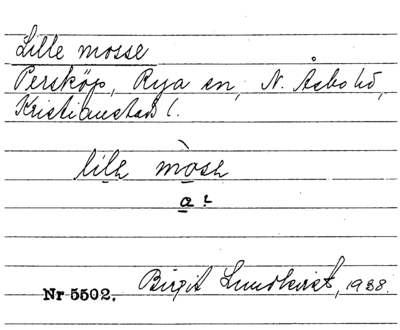 Lille mosse
Persköp, Rya sn, N. Åsbo hd,
Kristianstad l.
lilə mòsə
a ?
Nr 5502. Birgit Lundkvist, 1938.